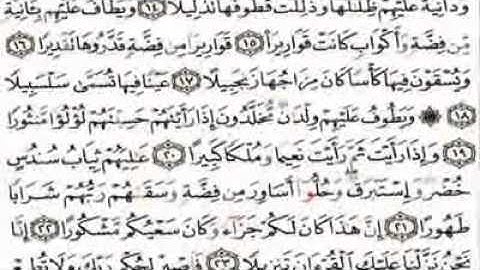 وَدَانِيَةً عَلَيْهِمْ ظِلَٰلُهَا وَذُلِّلَتْ قُطُوفُهَا تَذْلِيلًا ١٤ وَيُطَافُ عَلَيْهِم بِـَٔانِيَةٍ
مِّن فِضَّةٍ وَأَكْوَابٍ كَانَتْ قَوَارِيرَا۠ ١٥ قَوَارِيرَا۟ مِن فِضَّةٍ قَدَّرُوهَا تَقْدِيرًا ١٦
وَيُسْقَوْنَ فِيهَا كَأْسًا كَانَ مِزَاجُهَا زَنجَبِيلًا ١٧ عَيْنًا فِيهَا تُسَمَّىٰ سَلْسَبِيلًا
١٨ ۞ وَيَطُوفُ عَلَيْهِمْ وِلْدَٰنٌ مُّخَلَّدُونَ إِذَا رَأَيْتَهُمْ حَسِبْتَهُمْ لُؤْلُؤًا مَّنثُورًا
١٩ وَإِذَا رَأَيْتَ ثَمَّ رَأَيْتَ نَعِيمًا وَمُلْكًا كَبِيرًا ٢٠ عَٰلِيَهُمْ ثِيَابُ سُندُسٍ
خُضْرٌ وَإِسْتَبْرَقٌ وَحُلُّوٓا۟ أَسَاوِرَ مِن فِضَّةٍ وَسَقَىٰهُمْ رَبُّهُمْ شَرَابًا
طَهُورًا ٢١ إِنَّ هَٰذَا كَانَ لَكُمْ جَزَآءً وَكَانَ سَعْيُكُم مَّشْكُورًا ٢٢ إِنَّا
نَحْنُ نَزَّلْنَا عَلَيْكَ ٱلْقُرْءَانَ تَنزِيلًا ٢٣ فَٱصْبِرْ لِحُكْمِ رَبِّكَ وَلَا تُطِعْ